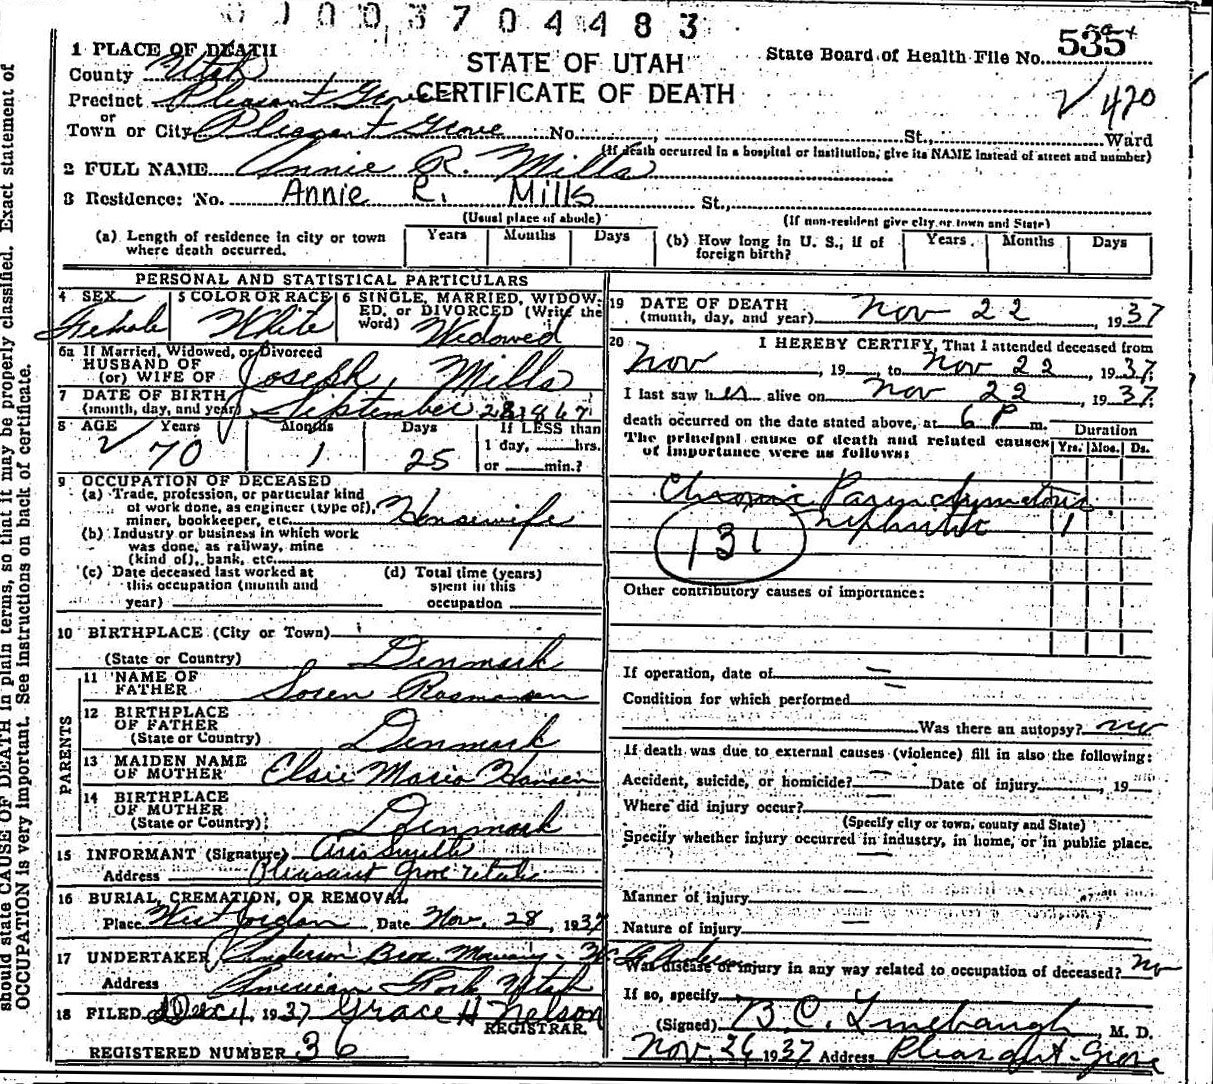 0100370 4483
1 PLACE OF DEATH
STATE OF UTAH
CERTIFICATE OF DEATH
State Board of Health File No. 535
County Utah
Precinct Pleasant Grove
√ 470
or
Town or City Pleasant Grove No. St., Ward
(If death occurred in a hospital or institution, give its NAME instead of street and number)
2 FULL NAME Annie R. Mills
3 Residence: No. Annie R. Mills St.,
(Usual place of abode) (If non-resident give city or town and State)
(a) Length of residence in city or town where death occurred. Years Months Days
(b) How long in U. S., if of foreign birth? Years Months Days
PERSONAL AND STATISTICAL PARTICULARS
4 SEX Female
5 COLOR OR RACE White
6 SINGLE, MARRIED, WIDOWED, or DIVORCED (Write the word) Widowed
6a If Married, Widowed, or Divorced
HUSBAND OF
(or) WIFE OF Joseph Mills
7 DATE OF BIRTH
(month, day, and year) September 28 1867
8 AGE Years Months Days If LESS than
√ 70 1 25 1 day, hrs.
or min.?
9 OCCUPATION OF DECEASED
(a) Trade, profession, or particular kind
of work done, as engineer (type of),
miner, bookkeeper, etc. Housewife
(b) Industry or business in which work
was done, as railway, mine
(kind of), bank, etc.
(c) Date deceased last worked at
this occupation (month and
year)
(d) Total time (years)
spent in this
occupation
10 BIRTHPLACE (City or Town)
(State or Country) Denmark
PARENTS
11 NAME OF
FATHER Soren Rasmussen
12 BIRTHPLACE
OF FATHER
(State or Country) Denmark
13 MAIDEN NAME
OF MOTHER Elsie Maria Hansen
14 BIRTHPLACE
OF MOTHER
(State or Country) Denmark
15 INFORMANT (Signature)
Address Pleasant Grove Utah
16 BURIAL, CREMATION, OR REMOVAL
Place West Jordan Date Nov. 28, 1937
17 UNDERTAKER Anderson Bros.
Address American Fork Utah
18 FILED Dec 1, 1937 Grace H Nelson
REGISTRAR.
REGISTERED NUMBER 36
19 DATE OF DEATH
(month, day, and year) Nov 22, 1937
20 I HEREBY CERTIFY, That I attended deceased from
Nov, 19, to Nov 22, 1937.
I last saw her alive on Nov 22, 1937.
death occurred on the date stated above, at 6 P m.
The principal cause of death and related causes
of importance were as follows:
Duration
Yrs. Mos. Ds.
Chronic Parenchymatous
nephritis 1
131
Other contributory causes of importance:
If operation, date of
Condition for which performed
Was there an autopsy? no
If death was due to external causes (violence) fill in also the following:
Accident, suicide, or homicide? Date of injury, 19
Where did injury occur?
(Specify city or town, county and State)
Specify whether injury occurred in industry, in home, or in public place.
Manner of injury
Nature of injury
Was disease or injury in any way related to occupation of deceased? no
If so, specify
(Signed) B. C. Linebaugh, M. D.
Nov. 26 1937 Address Pleasant Grove
should state CAUSE OF DEATH in plain terms, so that it may be properly classified. Exact statement of
OCCUPATION is very important. See instructions on back of certificate.